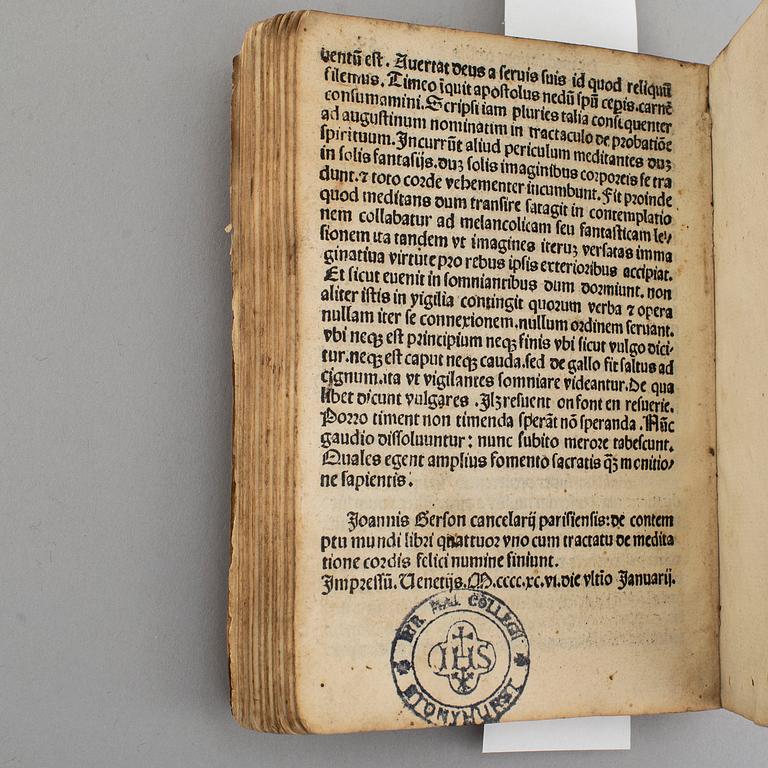 uentū est. Auertat deus a seruis suis id quod reliquū
silemus. Timeo īquit apostolus nedū spū cepis.carnē
consumamini. Scripsi iam pluries talia consequenter
ad augustinum nominatim in tractaculo de probatiōe
spirituum. Incurrūt aliud periculum meditantes duʒ
in solis fantasijs.duʒ solis imaginibus corporeis se tra
dunt.⁊ toto corde vehementer incumbunt. Fit proinde
quod meditans dum transire satagit in contemplatio
nem collabatur ad melancolicam seu fantasticam le/
sionem ita tandem vt imagines iteruʒ versatas imma
ginatiua virtute pro rebus ipsis exterioribus accipiat.
Et sicut euenit in somniantibus dum dormiunt. non
aliter istis in vigilia contingit quorum verba ⁊ opera
nullam iter se connexionem.nullum ordinem seruant.
vbi neqʒ est principium neqʒ finis vbi sicut vulgo dici/
tur.neqʒ est caput neqʒ cauda.sed de gallo fit saltus ad
cignum.ita vt vigilantes somniare videantur. De qua
libet dicunt vulgares . Jlʒ resuent on font en resuerie.
Porro timent non timenda sperāt nō speranda . Nūc
gaudio dissoluuntur : nunc subito merore tabescunt.
Quales egent amplius fomento sacratis qʒ monitio/
ne sapientis.
Joannis Gerson cancelarij parisiensis:de contem
ptu mundi libri quattuor vno cum tractatu de medita
tione cordis felici numine finiunt.
Jmpressū. Uenetijs. M.cccc.xc.vi.die vltīo Januarij.
MAI. COLLEGII
IHS